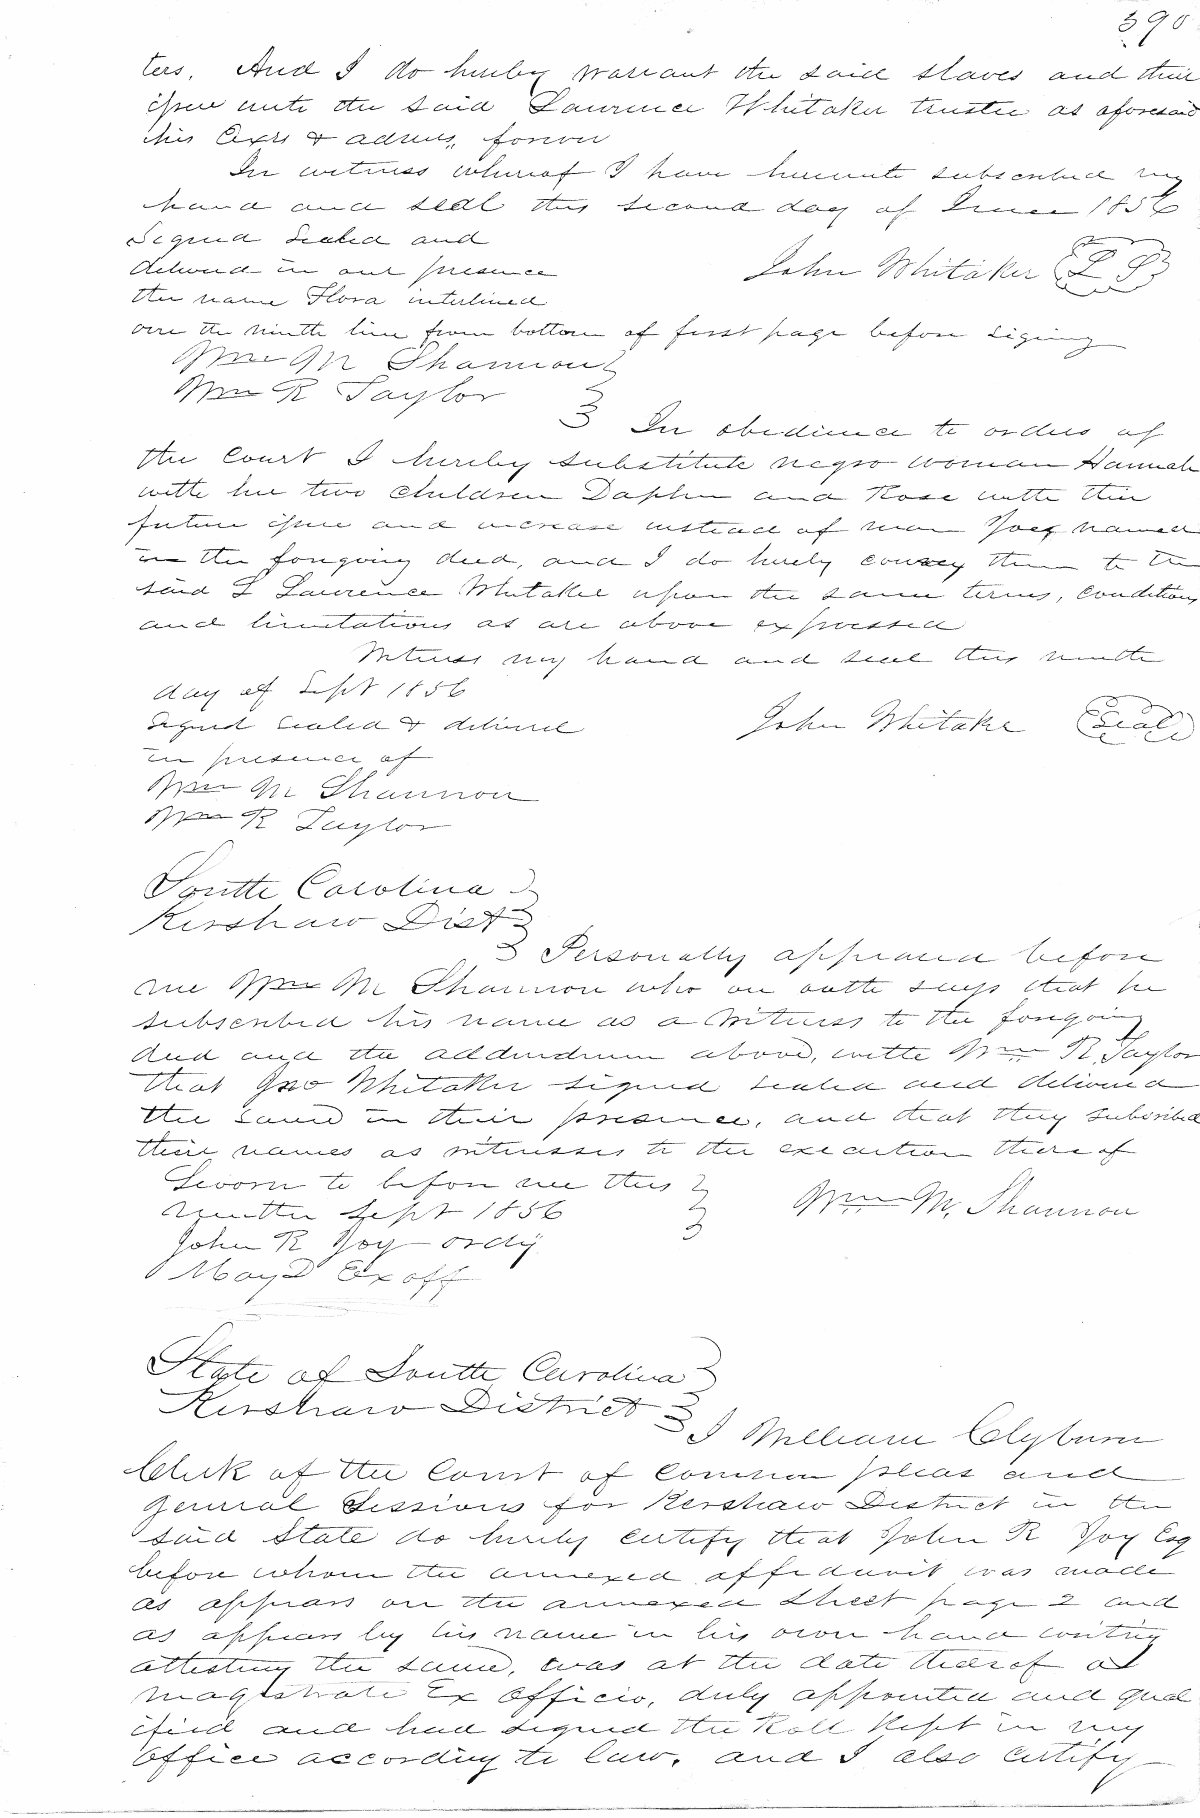 390
ters. And I do hereby warrant the said slaves and their
issue unto the said Lawrence Whitaker trustee as aforesaid
his Exrs & admrs, forever
In witness whereof I have hereunto subscribed my
hand and seal this second day of June 1856
Signed Sealed and
delivered in our presence
the name Flora interlined
over the ninth line from bottom of first page before signing
John Whitaker L S
Wm M Shannon
Wm R Taylor
In obedience to orders of
the Court I hereby substitute negro woman Hannah
with her two children Daphne and Rose with their
future issue and increase instead of man Joey named
in the foregoing deed, and I do hereby convey them to the
said L Lawrence Whitaker upon the same terms, conditions
and limitations as are above expressed
Witness my hand and seal this ninth
day of Sept 1856
Signed sealed & delivered
John Whitaker Seal
in presence of
Wm M Shannon
Wm R Taylor
South Carolina
Kershaw Dist
Personally appeared before
me Wm M Shannon who on oath says that he
subscribed his name as a Witness to the foregoing
deed and the addendum above, with Wm R. Taylor
that Jno Whitaker signed sealed and delivered
the same in their presence, and that they subscribed
their names as witnesses to the execution thereof
Sworn to before me this
ninth Sept 1856
Wm M. Shannon
John R Joy ordy
Mag Ex off
State of South Carolina
Kershaw District
I William Clyburn
Clerk of the Court of Common pleas and
general Sessions for Kershaw District in the
said State do hereby certify that John R Joy Esq
before whom the annexed affidavit was made
as appears on the annexed sheet page 2 and
as appears by his name in his own hand writing
attesting the same, was at the date thereof a
magistrate Ex Officio, duly appointed and qual
ified and had signed the Roll Kept in my
office according to law. and I also certify